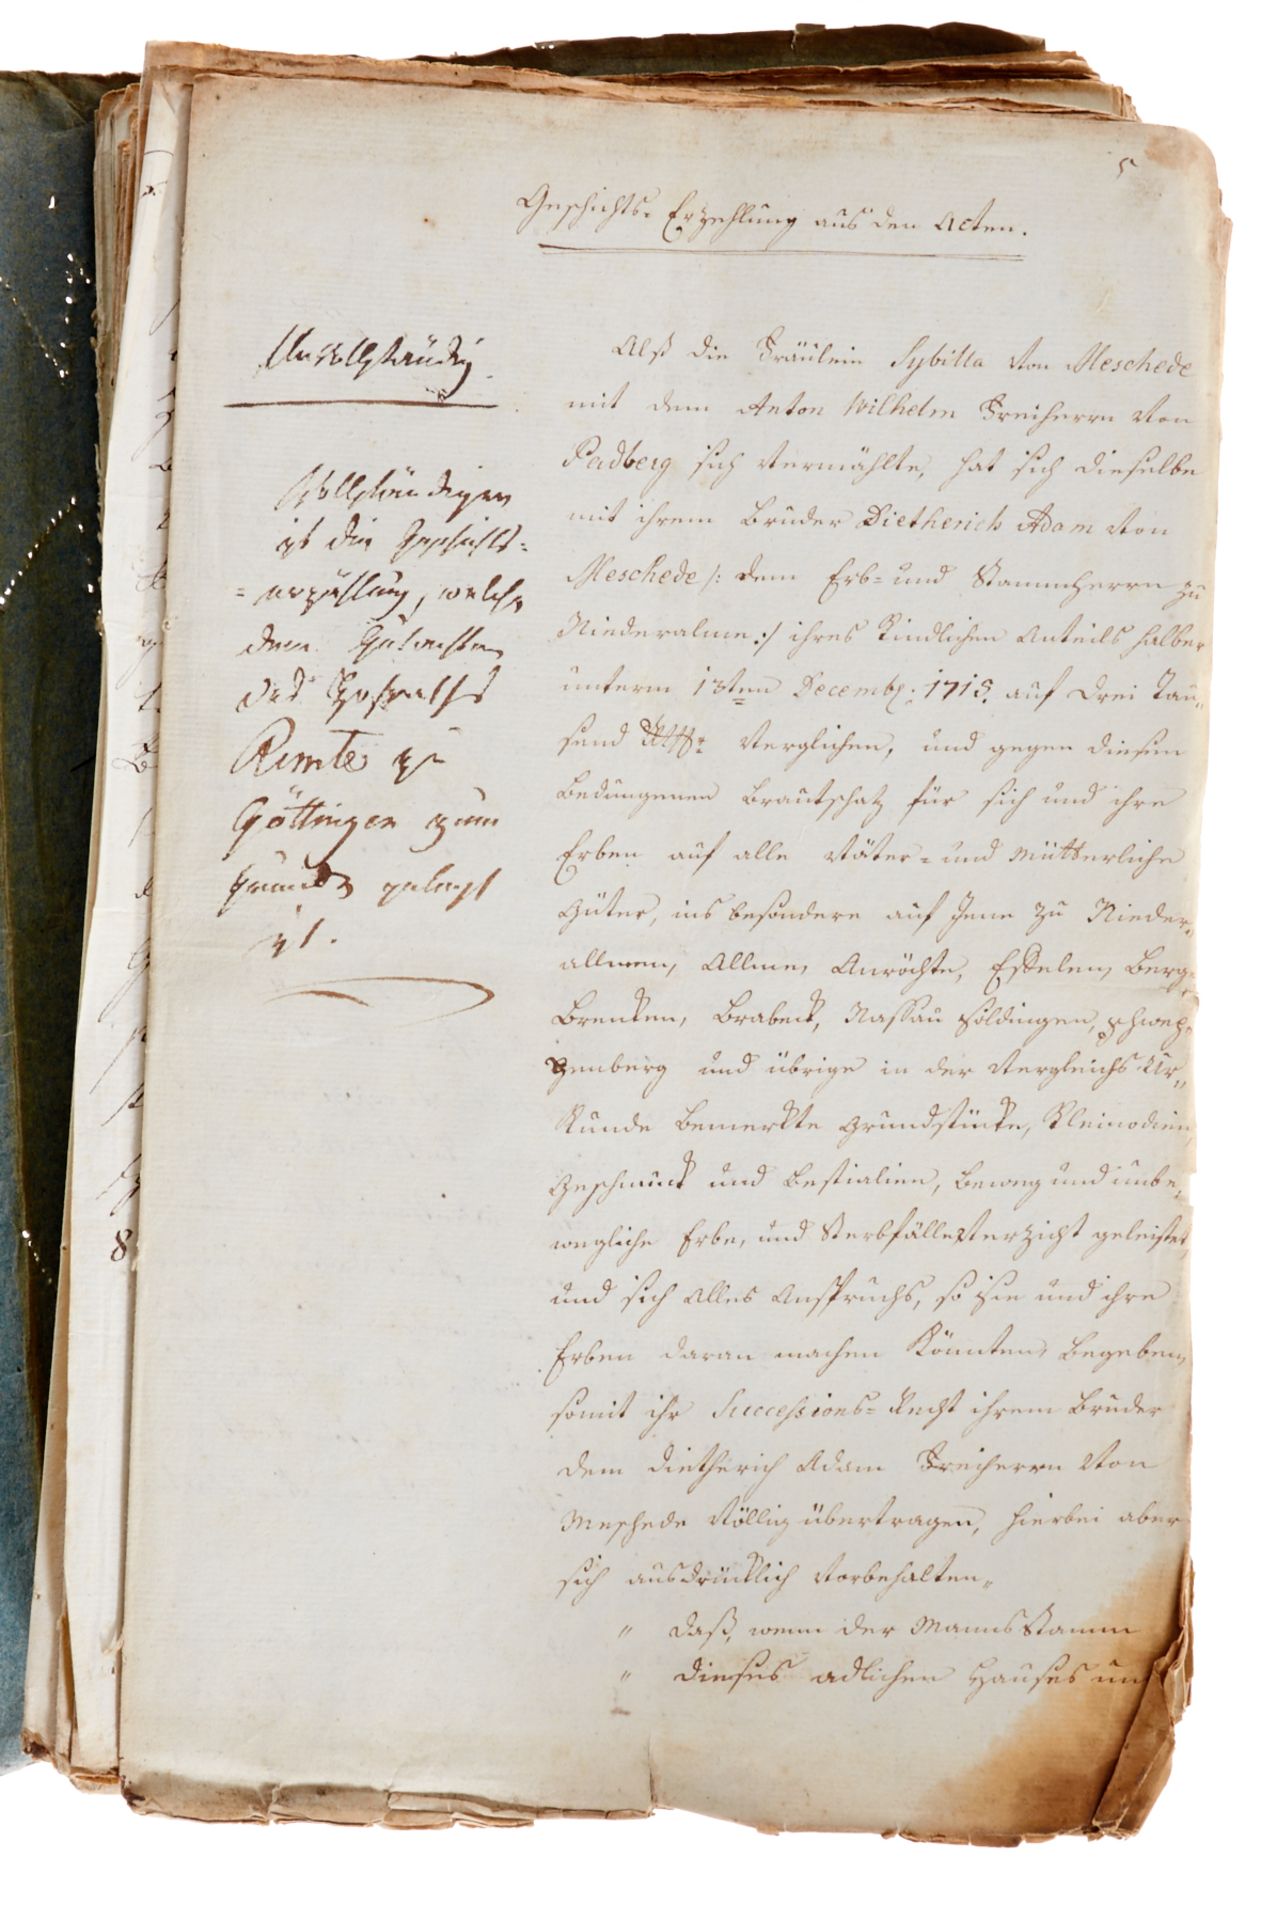 5
Geschichts-Erzehlung aus den Acten.
Unvollständig
Vollständiger
ist die Geschichts=
=erzählung, welche
dem Gutachten
des Hofraths
Runde zu
Göttingen zum
Grunde gelegt
ist.
Alß die Fräulein Sybilla von Meschede
mit dem Anton Wilhelm Freiherrn von
Padberg sich vermählte, hat sich dieselbe
mit ihrem Bruder Dietherich Adam von
Meschede /: dem Erb= und Stammherrn zu
Niederalme :/ ihres Kindlichen Anteils halber
unterm 13ten Decembr. 1715. auf drei Tau„
send Rthlr verglichen, und gegen diesen
bedungenen Brautschatz für sich und ihre
Erben auf alle Väter= und Mütterliche
Güter, ins besondere auf Jene zu Nieder„
allmen, Allme, Anröchte, Esselen, Berg=
Brenken, Brabeck, Nassau Söldingen, Schwep=
penberg und übrige in der Vergleichs Ur„
kunde bemerkte Grundstücke, Kleinodien,
Geschmuck und Bestialien, beweg und unbe„
wegliche Erbe, und Sterbfälle Verzicht geleistet,
und sich alles Anspruchs, so sie und ihre
Erben daran machen könnten, begeben,
somit ihr Successions= Recht ihrem Bruder
dem Dietherich Adam Freiherrn von
Meschede völlig übertragen, hierbei aber
sich ausdrücklich vorbehalten„
„ daß, wenn der Manns Stamm
„ dieses adlichen Hauses un